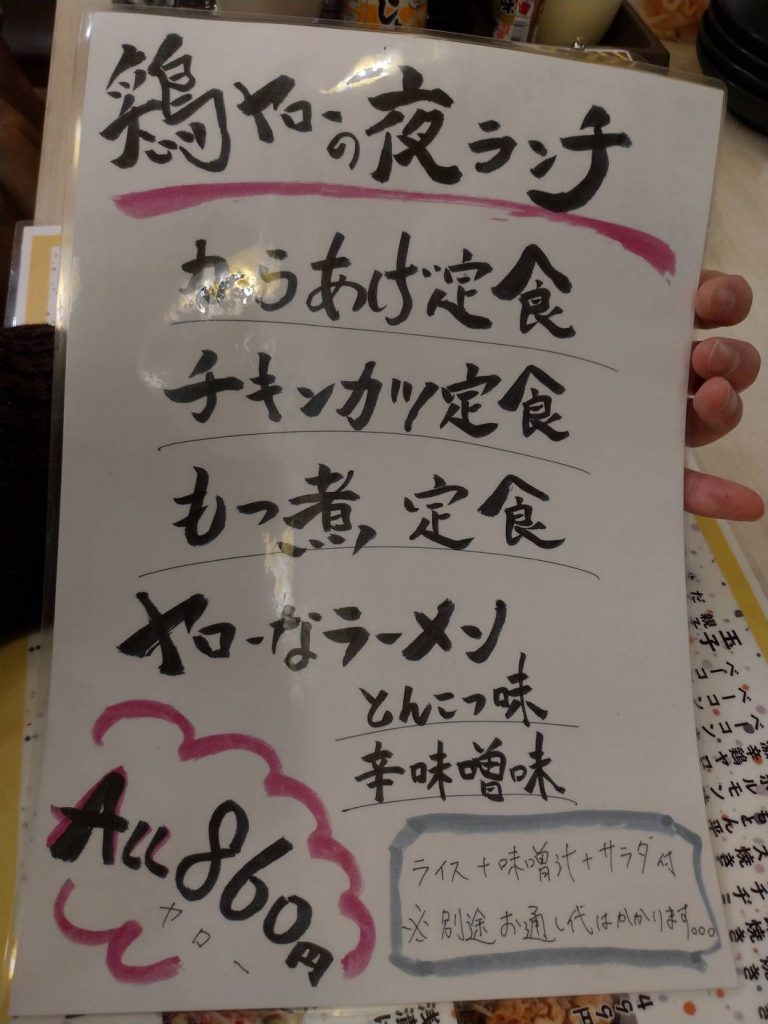 鶏ヤローの夜ランチ
からあげ定食
チキンカツ定食
もつ煮定食
ヤローなラーメン
とんこつ味
辛味噌味
All 860円
ヤロー
ライス+味噌汁+サラダ付
※別途お通し代はかかります。。。
玉子
ベーコ
ベーコン
499円